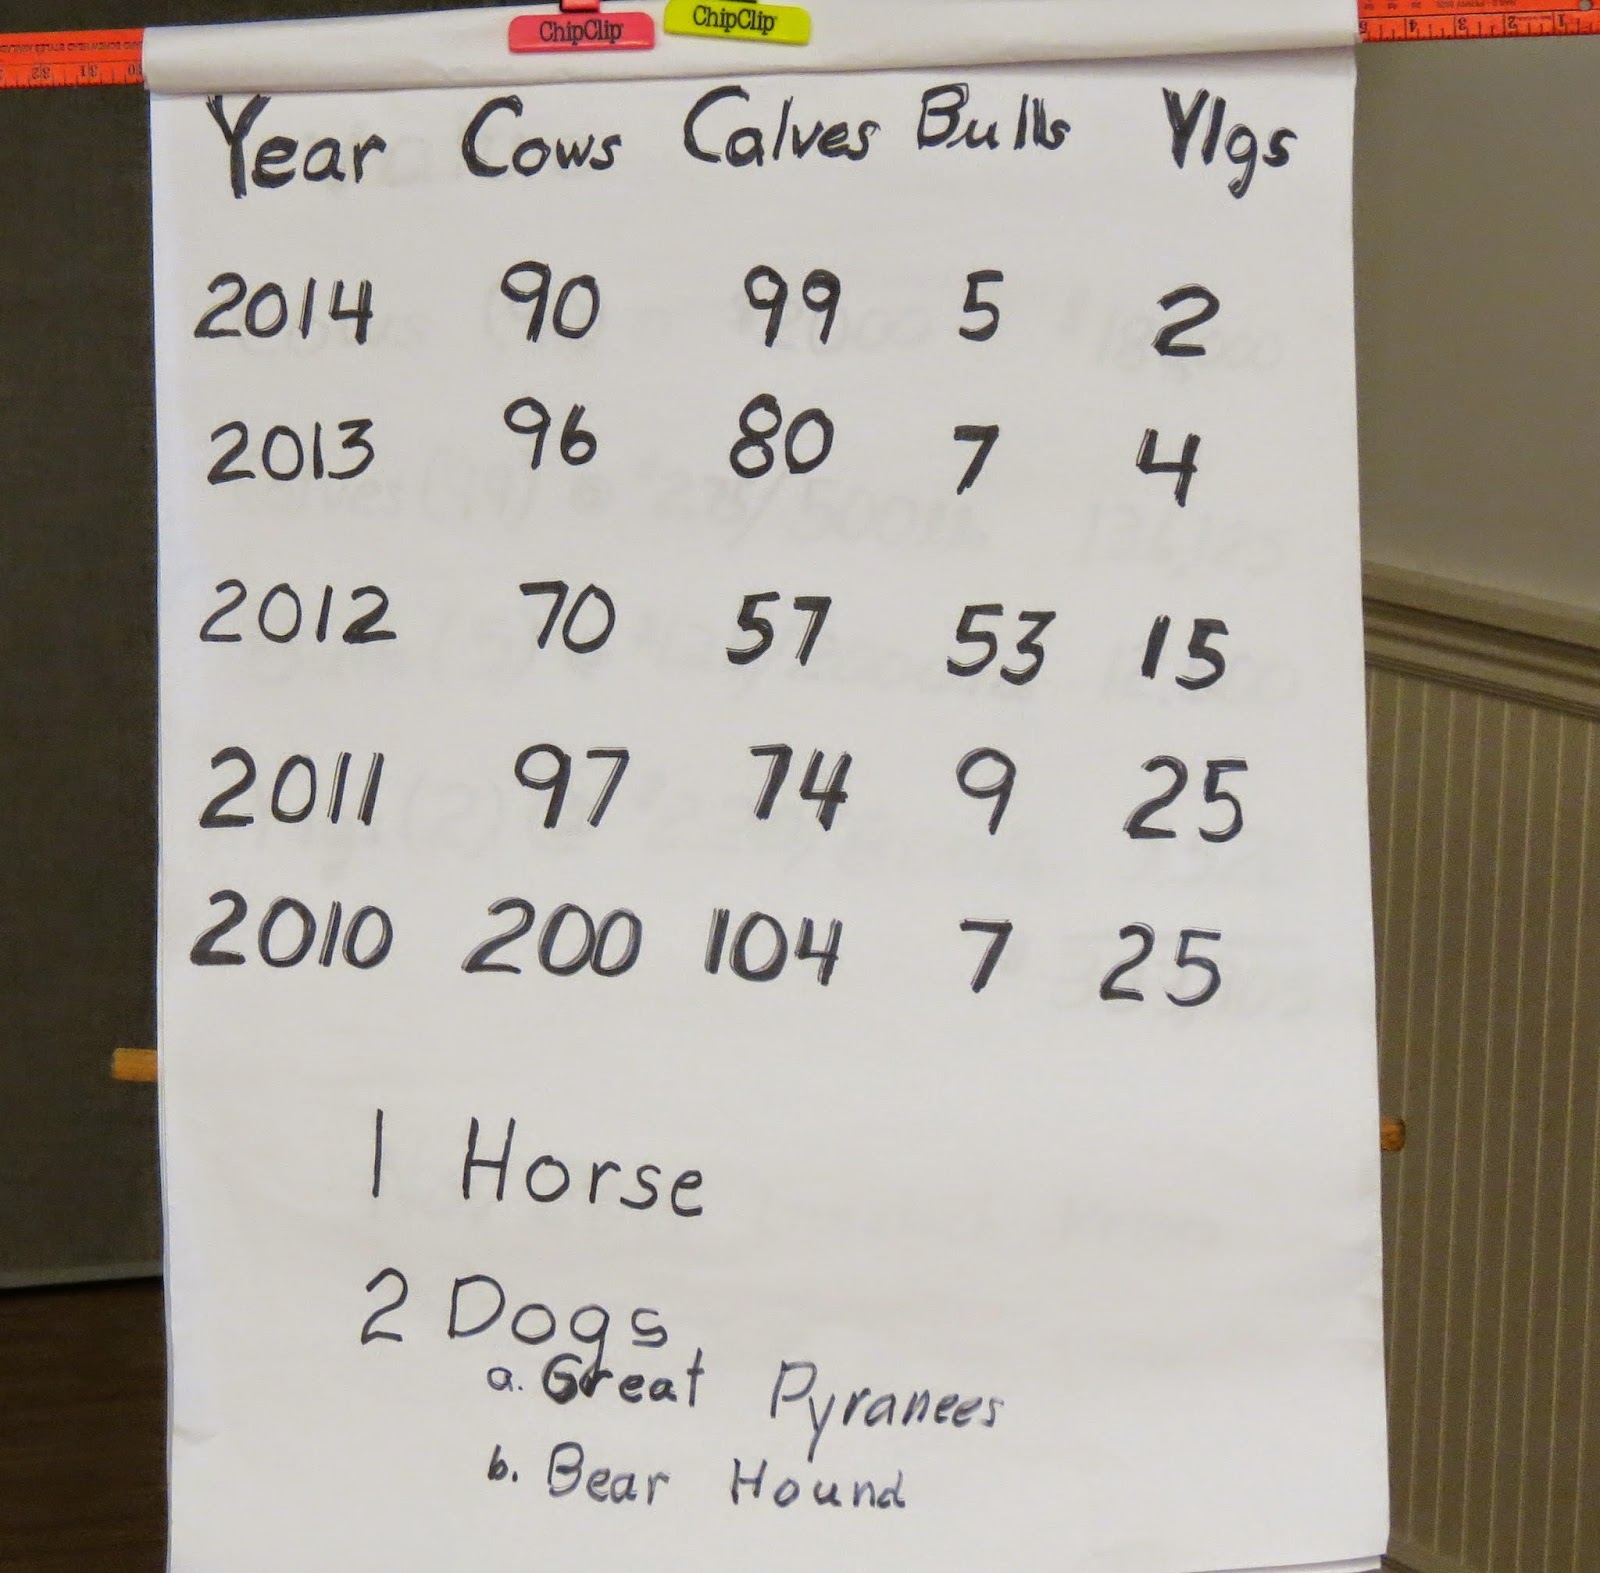 ChipClip ChipClip
Year Cows Calves Bulls Ylgs
2014 90 99 5 2
2013 96 80 7 4
2012 70 57 53 15
2011 97 74 9 25
2010 200 104 7 25
1 Horse
2 Dogs
a. Great Pyranees
b. Bear Hound